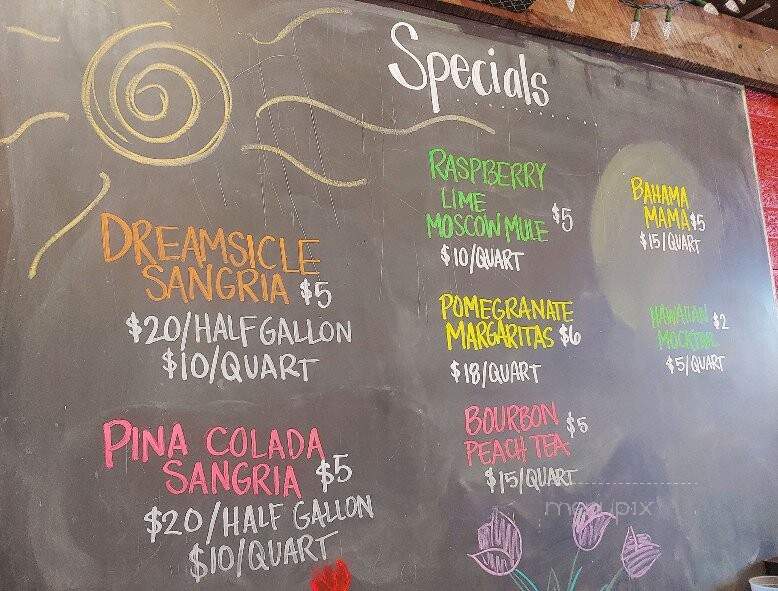 Specials
DREAMSICLE
SANGRIA $5
$20/HALF GALLON
$10/QUART
PINA COLADA
SANGRIA $5
$20/HALF GALLON
$10/QUART
RASPBERRY
LIME
MOSCOW MULE $5
$10/QUART
POMEGRANATE
MARGARITAS $6
$18/QUART
BOURBON $5
PEACH TEA
$15/QUART
BAHAMA
MAMA $5
$15/QUART
HAWAIIAN $2
MOCKTAIL
$5/QUART